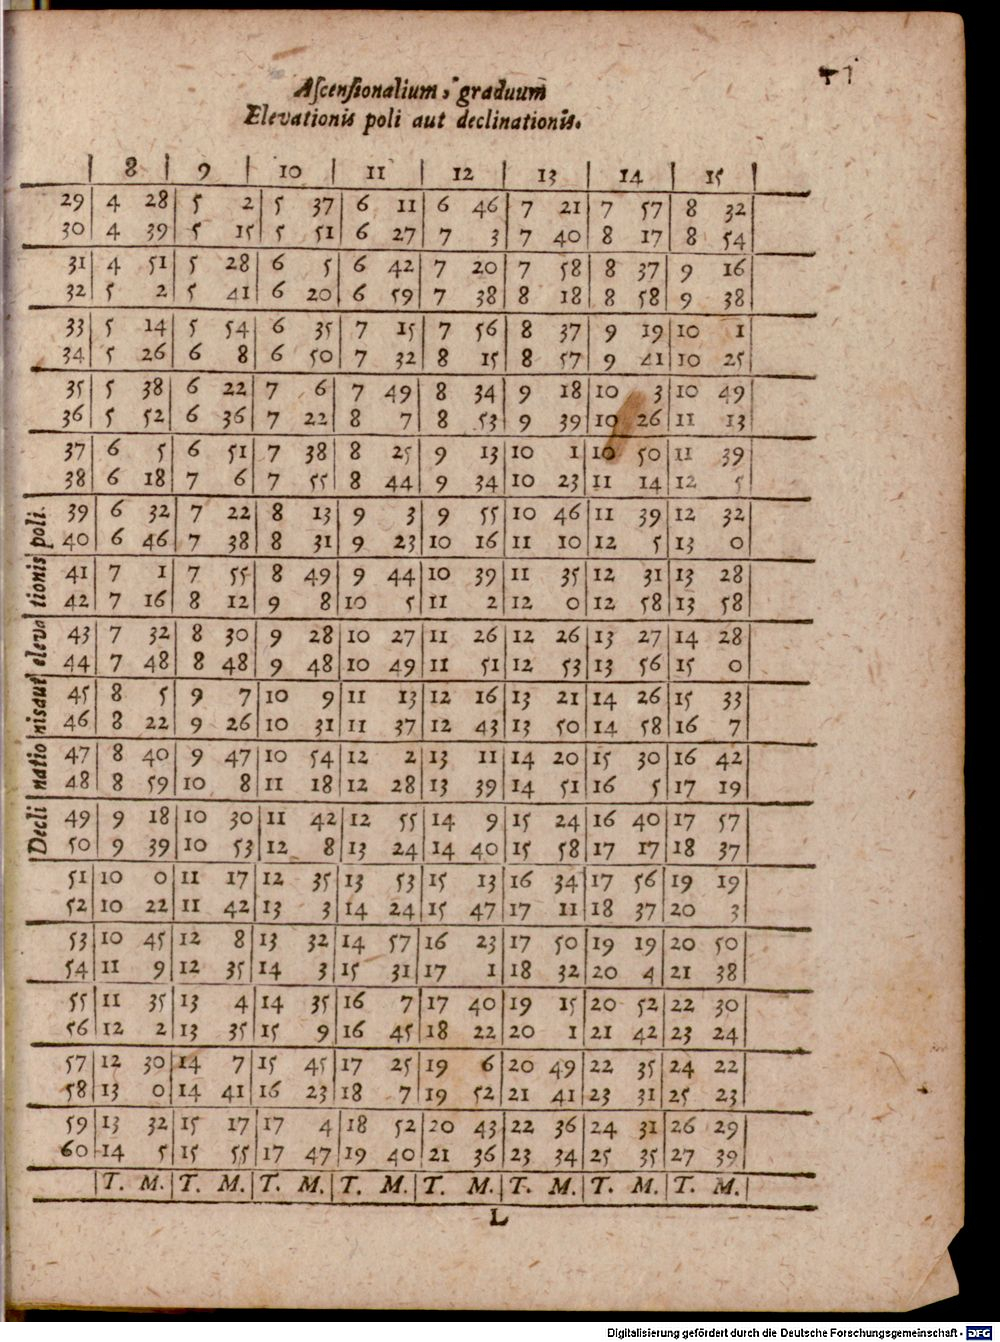 Ascensionalium, graduum
Elevationis poli aut declinationis.
8 9 10 11 12 13 14 15
29 4 28 5 2 5 37 6 11 6 46 7 21 7 57 8 32
30 4 39 5 15 5 51 6 27 7 3 7 40 8 17 8 54
31 4 51 5 28 6 5 6 42 7 20 7 58 8 37 9 16
32 5 2 5 41 6 20 6 59 7 38 8 18 8 58 9 38
33 5 14 5 54 6 35 7 15 7 56 8 37 9 19 10 1
34 5 26 6 8 6 50 7 32 8 15 8 57 9 41 10 25
35 5 38 6 22 7 6 7 49 8 34 9 18 10 3 10 49
36 5 52 6 36 7 22 8 7 8 53 9 39 10 26 11 13
37 6 5 6 51 7 38 8 25 9 13 10 1 10 50 11 39
38 6 18 7 6 7 55 8 44 9 34 10 23 11 14 12 5
39 6 32 7 22 8 13 9 3 9 55 10 46 11 39 12 32
40 6 46 7 38 8 31 9 23 10 16 11 10 12 5 13 0
41 7 1 7 55 8 49 9 44 10 39 11 35 12 31 13 28
42 7 16 8 12 9 8 10 5 11 2 12 0 12 58 13 58
43 7 32 8 30 9 28 10 27 11 26 12 26 13 27 14 28
44 7 48 8 48 9 48 10 49 11 51 12 53 13 56 15 0
45 8 5 9 7 10 9 11 13 12 16 13 21 14 26 15 33
46 8 22 9 26 10 31 11 37 12 43 13 50 14 58 16 7
47 8 40 9 47 10 54 12 2 13 11 14 20 15 30 16 42
48 8 59 10 8 11 18 12 28 13 39 14 51 16 5 17 19
49 9 18 10 30 11 42 12 55 14 9 15 24 16 40 17 57
50 9 39 10 53 12 8 13 24 14 40 15 58 17 17 18 37
51 10 0 11 17 12 35 13 53 15 13 16 34 17 56 19 19
52 10 22 11 42 13 3 14 24 15 47 17 11 18 37 20 3
53 10 45 12 8 13 32 14 57 16 23 17 50 19 19 20 50
54 11 9 12 35 14 3 15 31 17 1 18 32 20 4 21 38
55 11 35 13 4 14 35 16 7 17 40 19 15 20 52 22 30
56 12 2 13 35 15 9 16 45 18 22 20 1 21 42 23 24
57 12 30 14 7 15 45 17 25 19 6 20 49 22 35 24 22
58 13 0 14 41 16 23 18 7 19 52 21 41 23 31 25 23
59 13 32 15 17 17 4 18 52 20 43 22 36 24 31 26 29
60 14 5 15 55 17 47 19 40 21 36 23 34 25 35 27 39
T. M. T. M. T. M. T. M. T. M. T. M. T. M. T. M.
Decli natio nisaut eleva tionis poli.
L
Digitalisierung gefördert durch die Deutsche Forschungsgemeinschaft - DFG